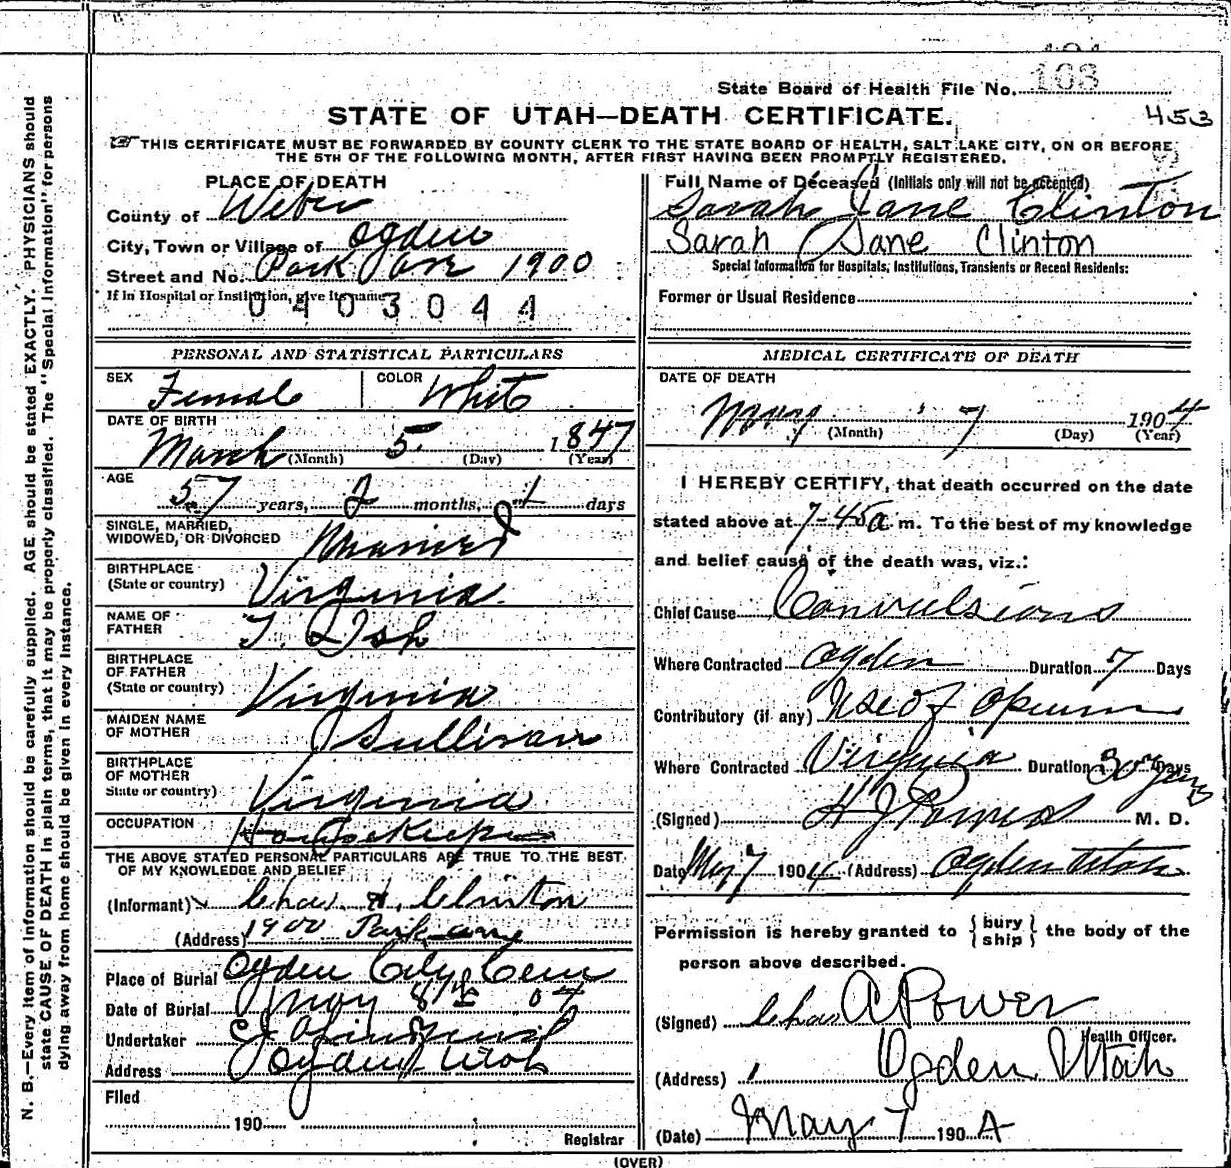 State Board of Health File No. 103
STATE OF UTAH—DEATH CERTIFICATE. 453
THIS CERTIFICATE MUST BE FORWARDED BY COUNTY CLERK TO THE STATE BOARD OF HEALTH, SALT LAKE CITY, ON OR BEFORE
THE 5TH OF THE FOLLOWING MONTH, AFTER FIRST HAVING BEEN PROMPTLY REGISTERED.
PLACE OF DEATH
County of Weber
City, Town or Village of Ogden
Street and No. Park Ave 1900
If in Hospital or Institution, give its name
0403044
Full Name of Deceased (Initials only will not be accepted)
Sarah Jane Clinton
Sarah Jane Clinton
Special Information for Hospitals, Institutions, Transients or Recent Residents:
Former or Usual Residence
PERSONAL AND STATISTICAL PARTICULARS
SEX Female COLOR White
DATE OF BIRTH
March (Month) 5 (Day) 1847 (Year)
AGE
57 years, 2 months, 1 days
SINGLE, MARRIED,
WIDOWED, OR DIVORCED Married
BIRTHPLACE
(State or country) Virginia
NAME OF
FATHER T. Ish
BIRTHPLACE
OF FATHER
(State or country) Virginia
MAIDEN NAME
OF MOTHER J Sullivan
BIRTHPLACE
OF MOTHER
State or country) Virginia
OCCUPATION Housekeeper
THE ABOVE STATED PERSONAL PARTICULARS ARE TRUE TO THE BEST
OF MY KNOWLEDGE AND BELIEF
(Informant) Chas. H. Clinton
(Address) 1900 Park ave
Place of Burial Ogden City Cem
Date of Burial May 8th 04
Undertaker
Address Ogden Utah
Filed
190
Registrar
MEDICAL CERTIFICATE OF DEATH
DATE OF DEATH
May 7 1904
(Month) (Day) (Year)
I HEREBY CERTIFY, that death occurred on the date
stated above at 7-45 a m. To the best of my knowledge
and belief cause of the death was, viz.:
Chief Cause Convulsions
Where Contracted Ogden Duration 7 Days
Contributory (if any) Use of Opium
Where Contracted Virginia Duration 30 years Days
(Signed) H J Powers M. D.
Date May 7 1904 (Address) Ogden Utah
Permission is hereby granted to {bury
ship} the body of the
person above described.
(Signed) Chas A Power
Health Officer.
(Address) Ogden Utah
(Date) May 7 1904
(OVER)
N. B.—Every item of information should be carefully supplied. AGE should be stated EXACTLY. PHYSICIANS should
state CAUSE OF DEATH in plain terms, that it may be properly classified. The "Special Information" for persons
dying away from home should be given in every instance.